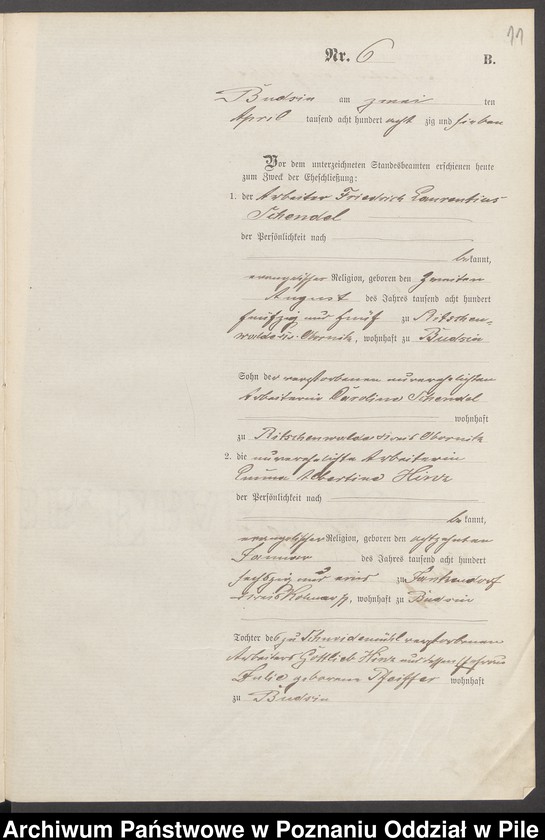 11
Nr. 6 B.
Budsin am zwei ten
April tausend acht hundert acht zig und sieben
Vor dem unterzeichneten Standesbeamten erschienen heute
zum Zweck der Eheschließung:
1. der Arbeiter Friedrich Laurentius
Schendel
der Persönlichkeit nach
be kannt,
evangelischer Religion, geboren den zweiten
August des Jahres tausend acht hundert
fünfzig und fünf zu Ritschen-
walde Kreis Obornik, wohnhaft zu Budsin
Sohn der verstorbenen unverehelichten
Arbeiterin Caroline Schendel
wohnhaft
zu Ritschenwalde Kreis Obornik
2. die unverehelichte Arbeiterin
Emma Albertine Hinz
der Persönlichkeit nach
be kannt,
evangelischer Religion, geboren den achtzehnten
Januar des Jahres tausend acht hundert
sechszig und eins zu
Kreis Kolmar /P, wohnhaft zu Budsin
Tochter des zu Schneidemühl verstorbenen
Arbeiters Gottlieb Hinz und dessen Ehefrau
Julie geborene Pfeiffer wohnhaft
zu Budsin
Archiwum Państwowe w Poznaniu Oddział w Pile